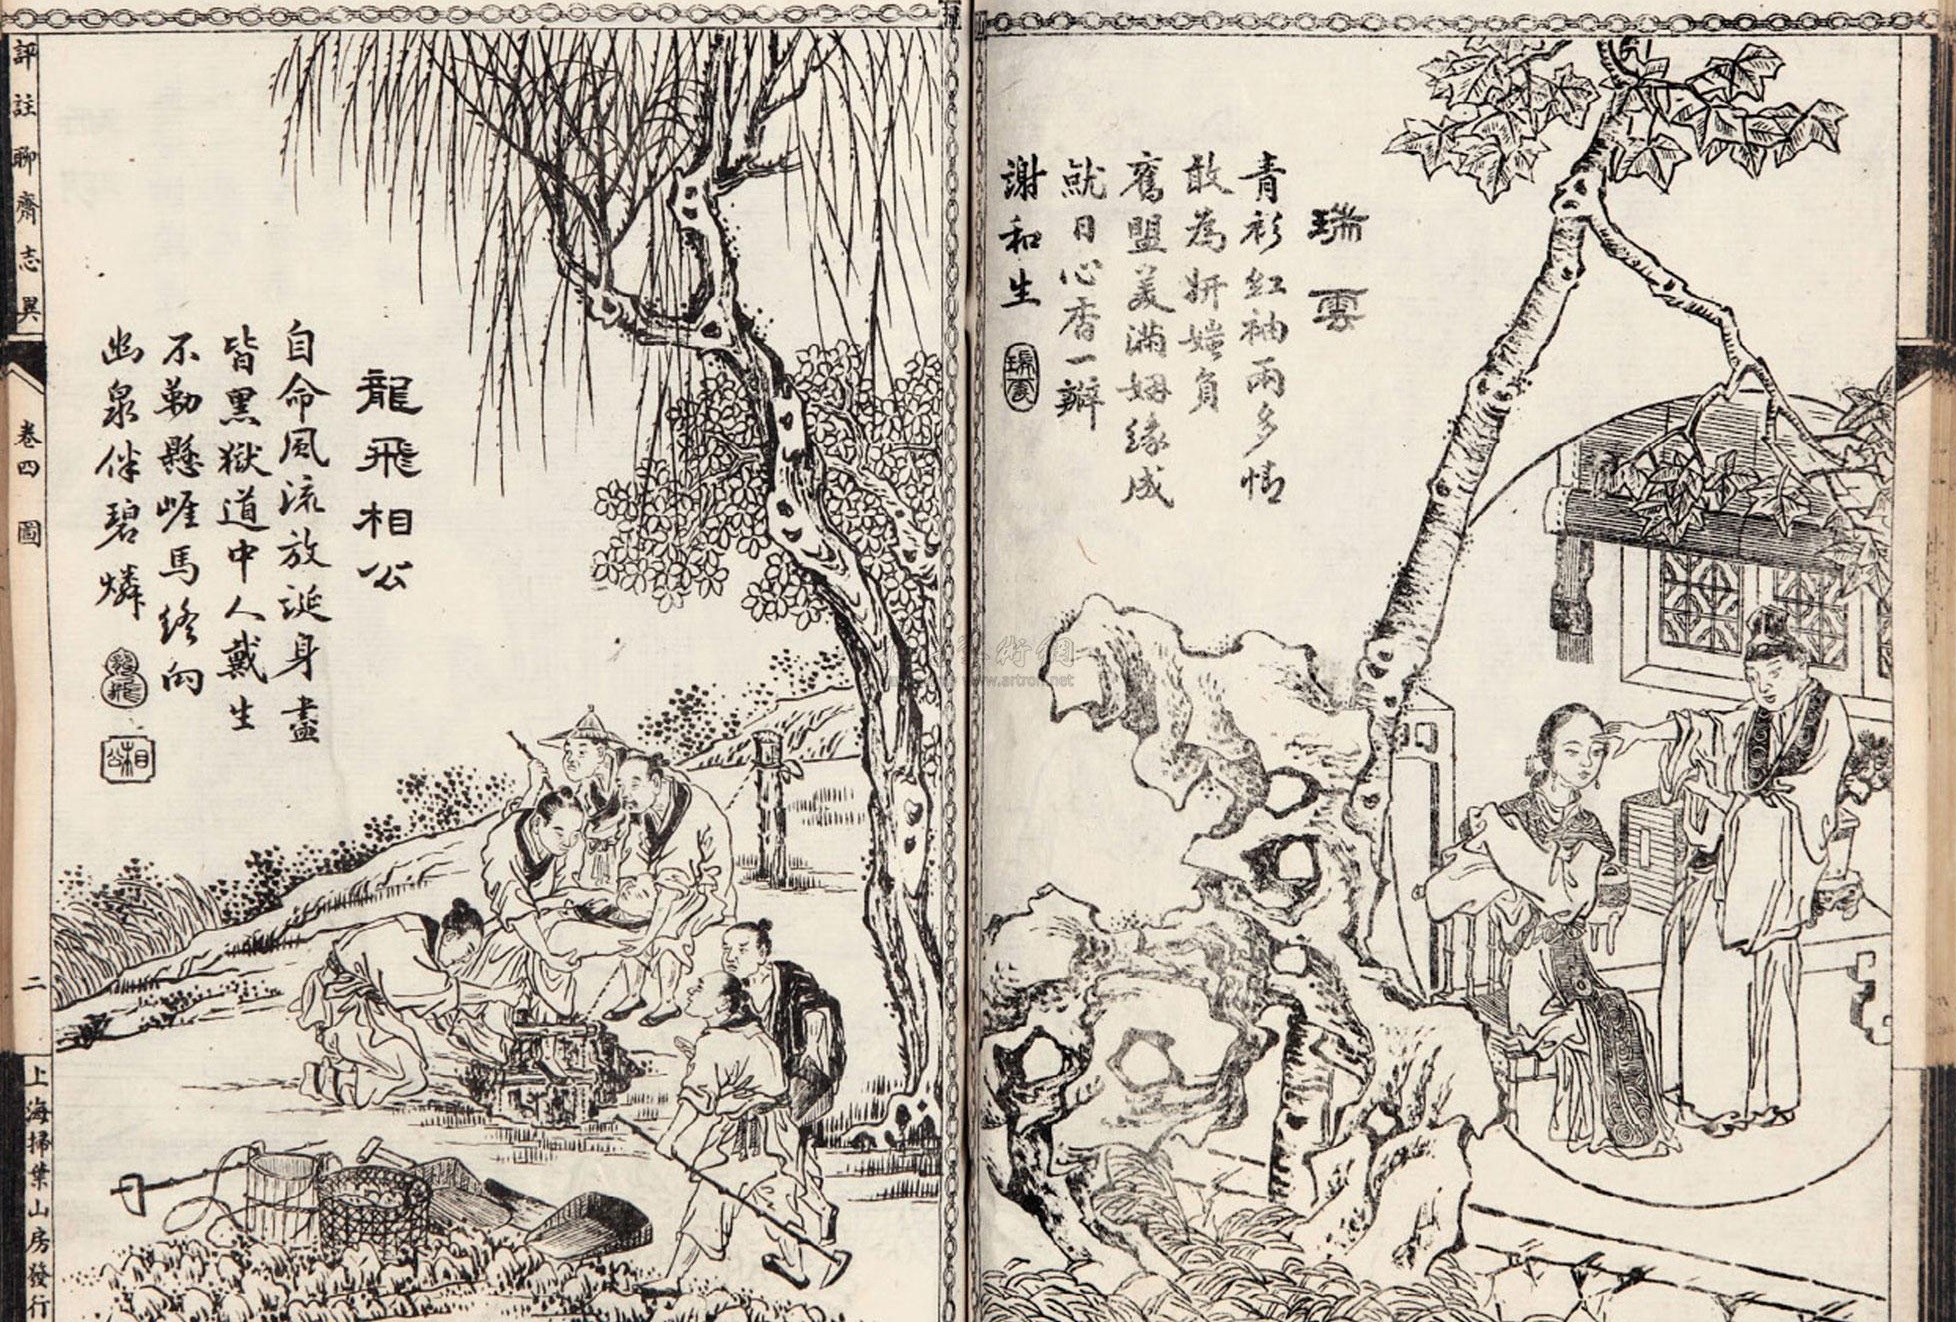 瑞雲
青衫紅袖兩多情
敢為妍媸負
舊盟美滿姻緣成
就日心香一瓣
謝和生
瑞雲
龍飛相公
自命風流放誕身盡
皆黑獄道中人戴生
不勒懸崖馬終向
幽泉伴碧燐
龍飛
相公
評註聊齋志異
卷四 圖
二
上海掃葉山房發行
藝術網
www.artron.net